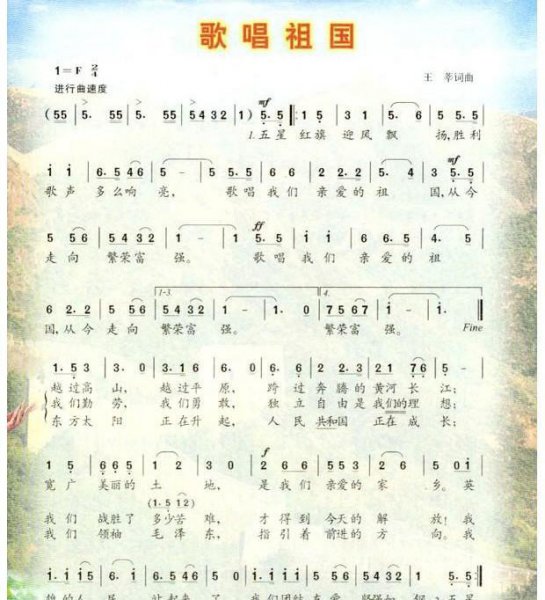 歌唱祖国
1=F 2/4
进行曲速度
王 莘词曲
(55 | 5. 55 | 5. 55 | 5432 | 1) mf 5.5 |: 1 5 | 3 1 | 5. 6 | 5 5.5 |
1.五星 红旗 迎风 飘 扬,胜利
i i | 6.546 | 5 - | 5 5.5 | 6 6 | 2 2.2 | 5. 4 | 3 mf 5.5 |
歌声 多么响 亮, 歌唱我们 亲爱的祖 国,从今
5 56 | 5432 | 1 - | 1 ff 5.5 | i i | 6 6.5 | 4. 5 |
走向 繁荣富 强。 歌唱我们 亲爱的祖
6 2.2 | 5 56 | 1-3. 5432 | 1 - | 1 0 :| 4. 7567 | 1 - | 1 0 ||
国,从今走向 繁荣富 强。 繁荣富 强。 Fine
1.53 | 3. 0 | 3.16 | 6. 0 | 6 2 | 2 2.3 | 21 76 | 5 - |
越过高 山, 越过平 原, 跨过奔腾的黄河长江;
我们勤 劳, 我们勇敢, 独立自由是我们的理 想;
东方太 阳 正在升 起, 人民共和国 正在成 长;
1 5 | 6 6.5 | 1 2 | 3 0 | f 2 66 | 5 6.5 | 4 2 | 5 0i |
宽广 美丽的 土 地, 是我们 亲爱的 家 乡。英
(1.5 12)
我们 战胜了 多少苦难, 才得到 今天的解 放!我
我们 领袖 毛泽东, 指引着前进的方 向。我